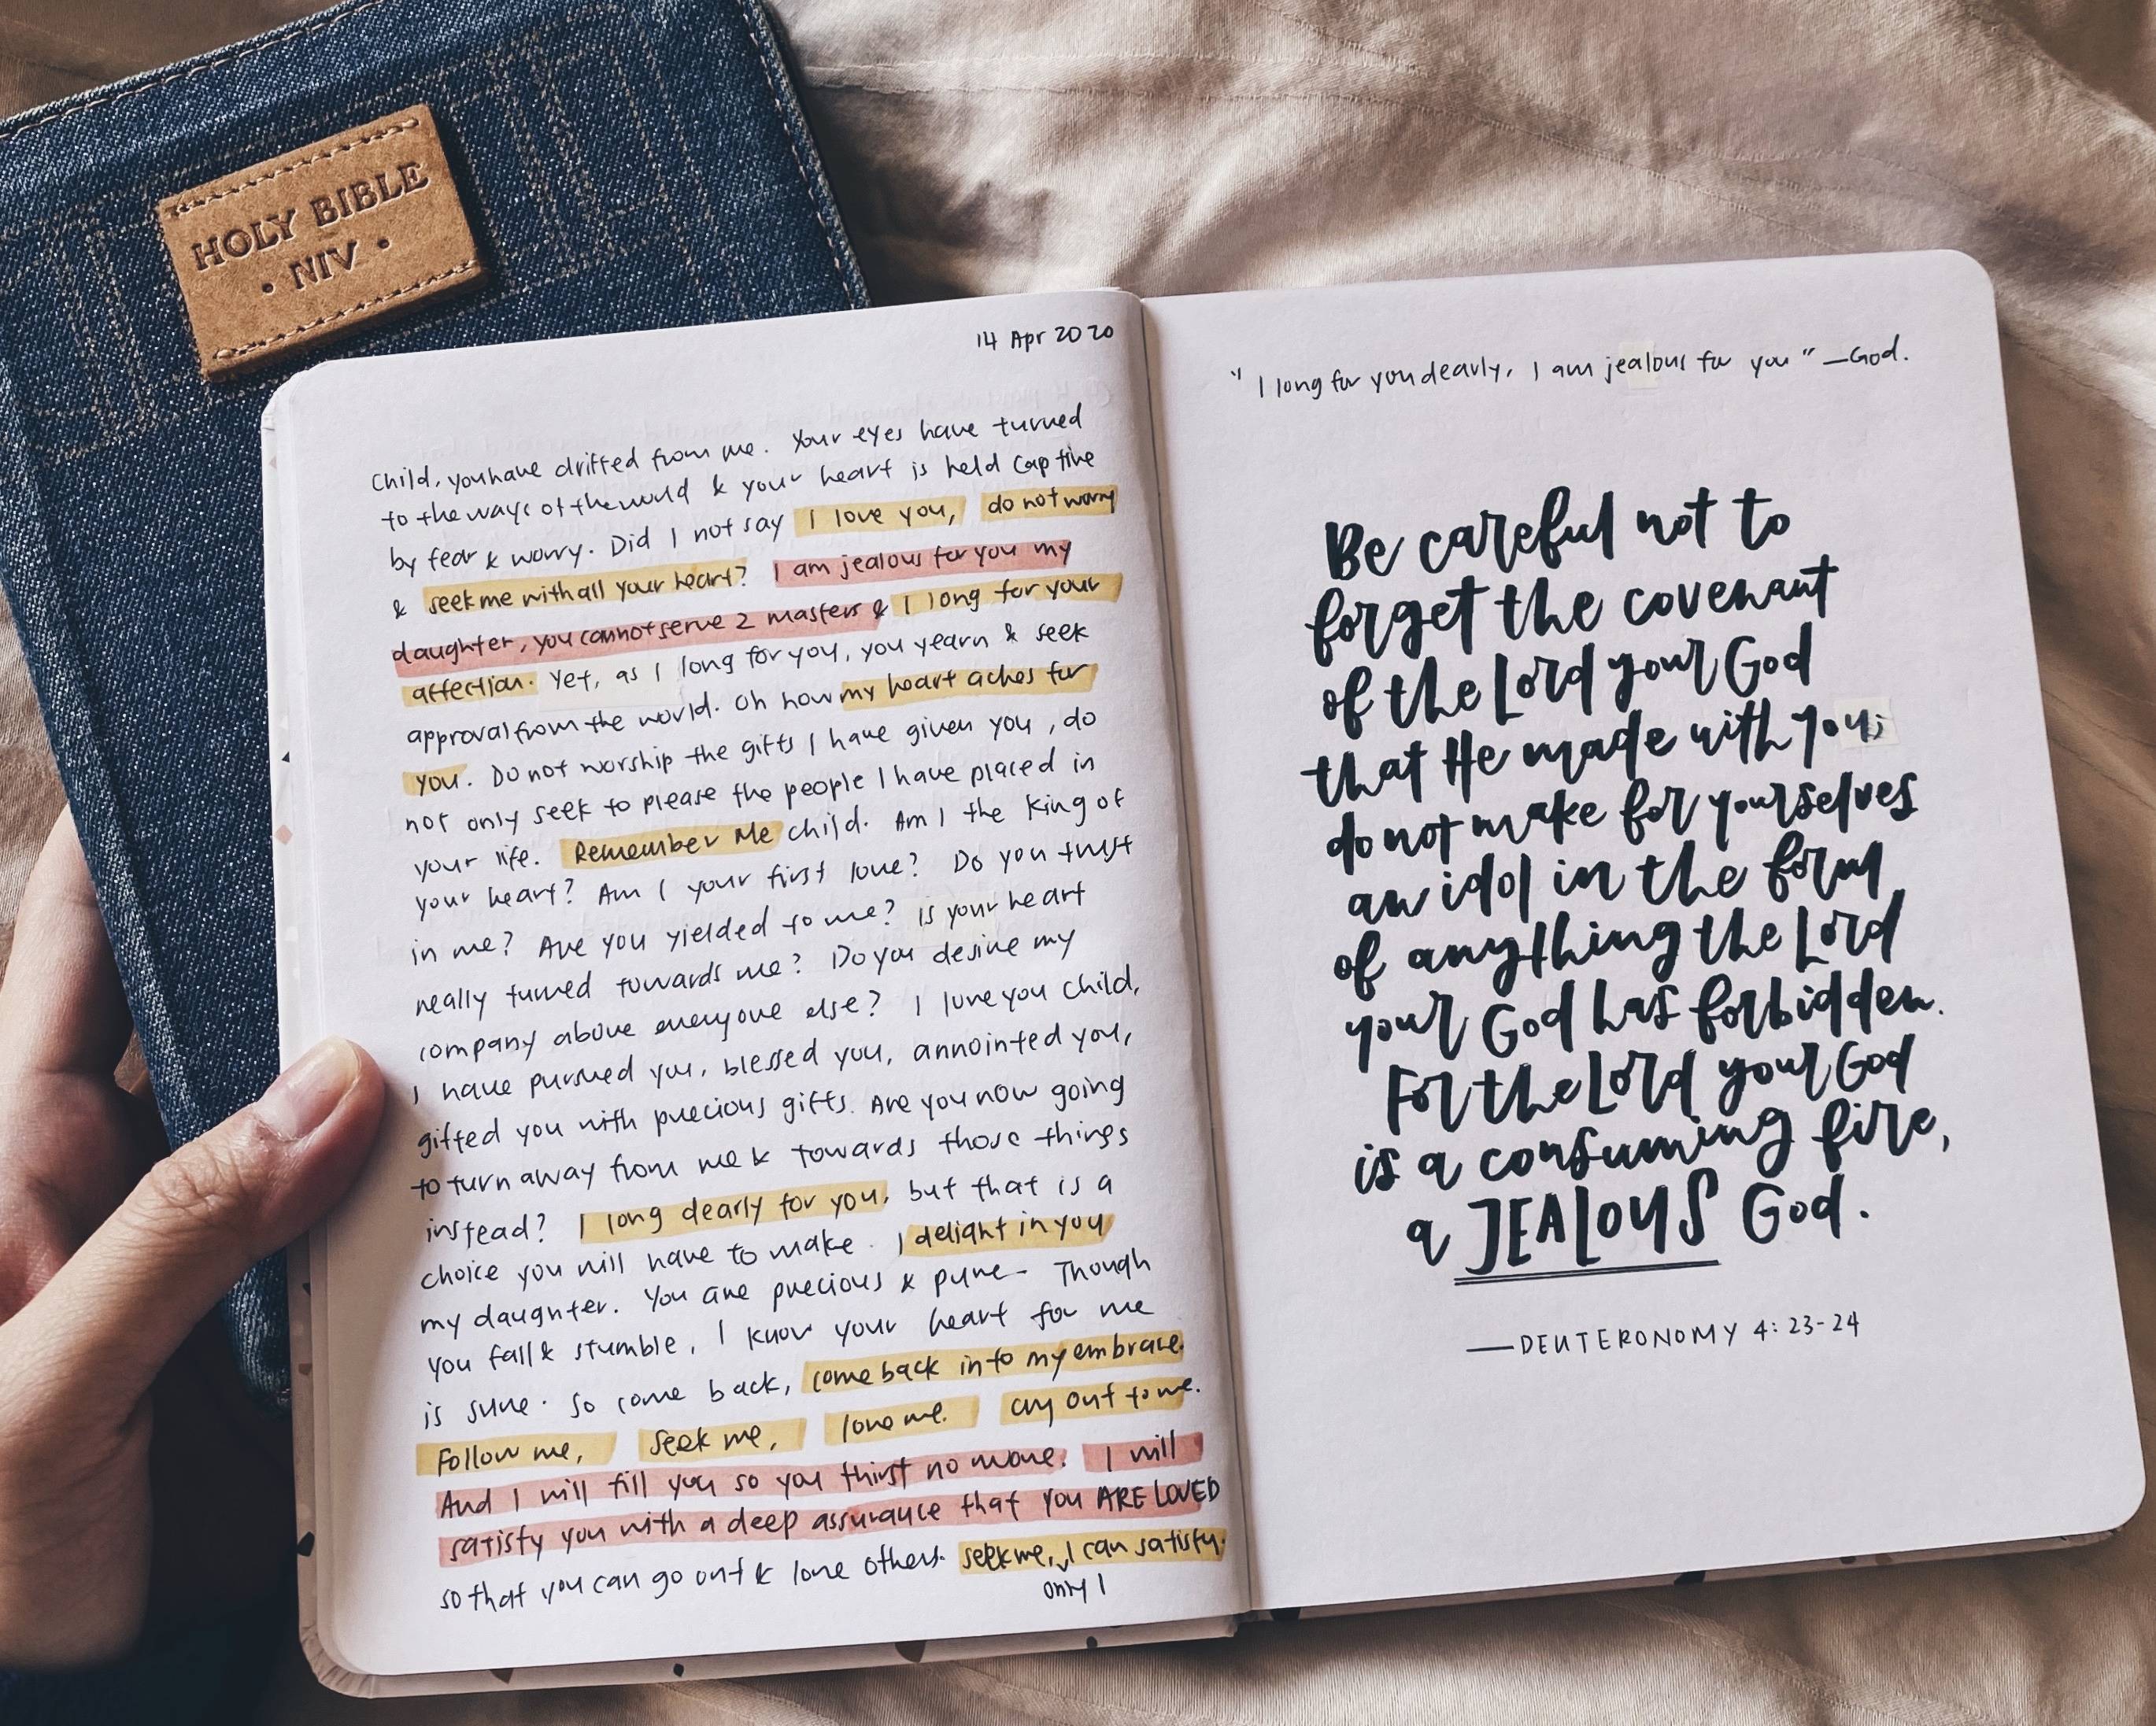 HOLY BIBLE
• NIV •
14 Apr 2020
Child, you have drifted from me. Your eyes have turned
to the ways of the world & your heart is held captive
by fear & worry. Did I not say I love you, do not worry
& seek me with all your heart? I am jealous for you my
daughter, you cannot serve 2 masters & I long for your
affection. Yet, as I long for you, you yearn & seek
approval from the world. Oh how my heart aches for
you. Do not worship the gifts I have given you, do
not only seek to please the people I have placed in
your life. Remember Me child. Am I the King of
your heart? Am I your first love? Do you trust
in me? Are you yielded to me? Is your heart
really turned towards me? Do you desire my
company above everyone else? I love you child,
I have pursued you, blessed you, annointed you,
gifted you with precious gifts. Are you now going
to turn away from me & towards those things
instead? I long dearly for you, but that is a
choice you will have to make. I delight in you
my daughter. You are precious & pure - Though
you fall & stumble, I know your heart for me
is sure. So come back, come back into my embrace.
Follow me, seek me, love me. cry out to me.
And I will fill you so you thirst no more. I will
satisfy you with a deep assurance that you ARE LOVED
so that you can go out & love others. seek me, I can satisfy.
only I
"I long for you dearly, I am jealous for you" —God.
Be careful not to
forget the covenant
of the Lord your God
that He made with you;
do not make for yourselves
an idol in the form
of anything the Lord
your God has forbidden.
For the Lord your God
is a consuming fire,
a JEALOUS God.
—DEUTERONOMY 4:23-24